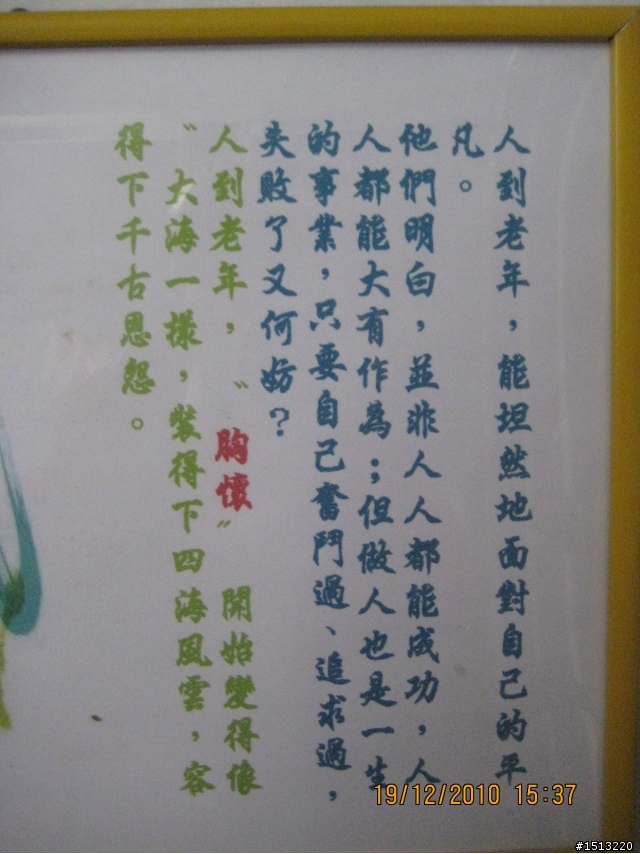 人到老年，能坦然地面對自己的平
凡。
他們明白，並非人人都能成功，人
人都能大有作為；但做人也是一生
的事業，只要自己奮鬥過、追求過，
失敗了又何妨？
人到老年，〝胸懷〞開始變得像
〝大海一樣，裝得下四海風雲，容
得下千古恩怨。
19/12/2010 15:37
#1513220